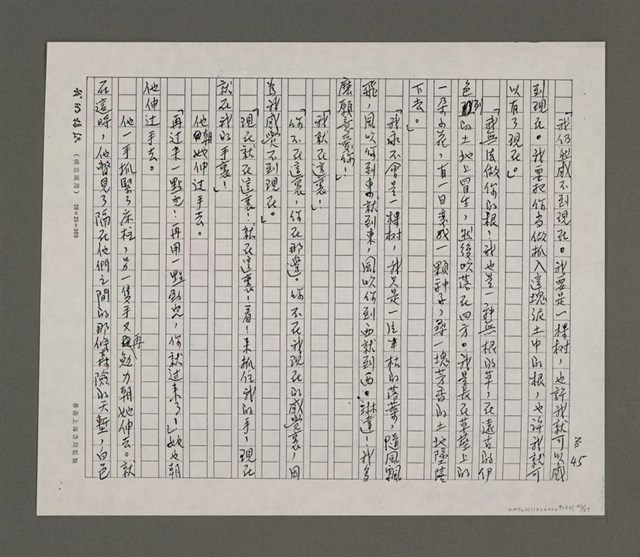 「我仍然感不到現在。我要是一棵樹，也許我就可以感
到現在。我要把你當做抓入這塊泥土中的根，也許我就可
以有了現在。」
「我無法做你的根！我也是一種無根的草，在遠古的伊
色列的土地上冒生，然後吹落在四方。我是長在草莖上的
一朵小花，有一日變成一顆種子，尋一塊芳香的土地墜落
下去。」
「我永不會是一棵樹，我只是一片半枯的落葉，隨風飄
飛，風吹你到東就到東，風吹你到西就到西。琳達！我多
麼願意愛你！」
「我就在這裏！」
「你不在這裏，你在那邊。你不在我現在的感覺裏，因
為我感覺不到現在。」
「現在就在這裏！就在這裏！看！來抓住我的手，現在
就在我的手裏！」
他朝她伸过手去。
「再过來一點兒！再用一點勁兒，你就过來了！」她也朝
他伸过手去。
他一手抓緊了床柱，另一隻手又再勉力朝她伸去。就
在這時，他瞥見了隔在他們之間的那條森險的大塹，白色
45
(橫直兩用) 20×25=500